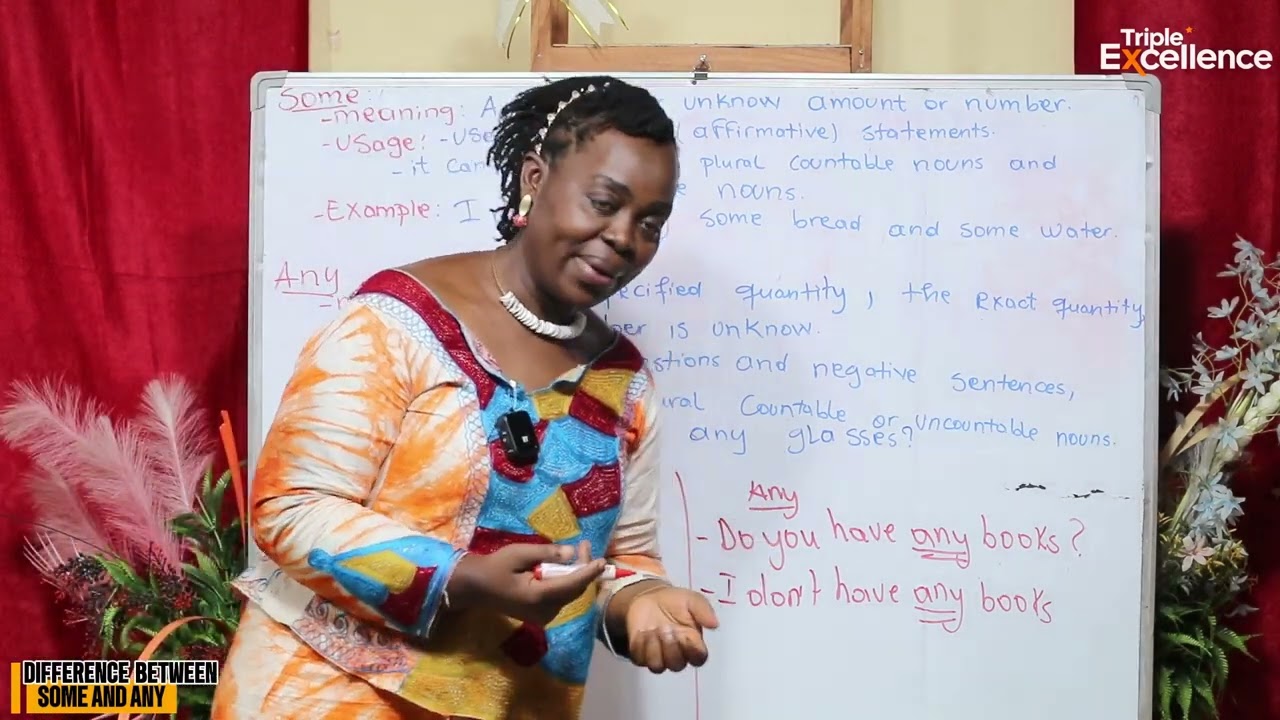 Triple
Excellence
Some
-meaning: A unknow amount or number.
-usage: - (affirmative) statements.
- it can plural countable nouns and
nouns.
-Example: I some bread and some water.
Any
quantity, the exact quantity
is unknow.
and negative sentences,
countable or uncountable nouns.
any glasses?
Any
- Do you have any books?
- I don't have any books
DIFFERENCE BETWEEN
SOME AND ANY